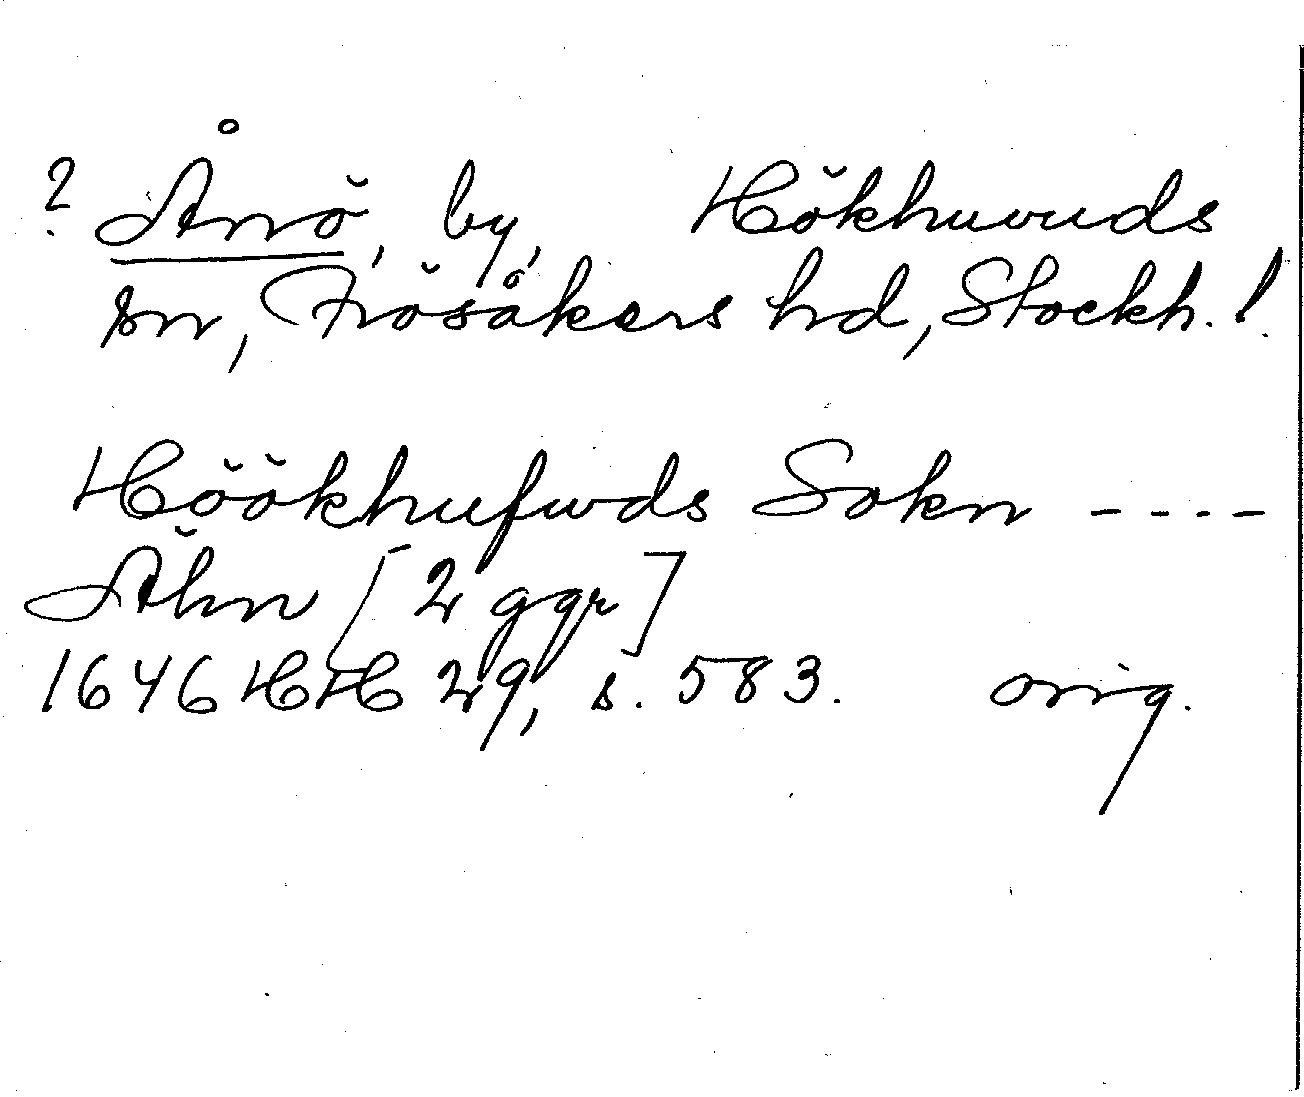 ? Ånö, by, Hökhuvuds
sn, Frösåkers hd, Stockh. l.
Höökhufwds Sokn ----
Åhn [2 ggr]
1646 HH 29, s. 583. orig.